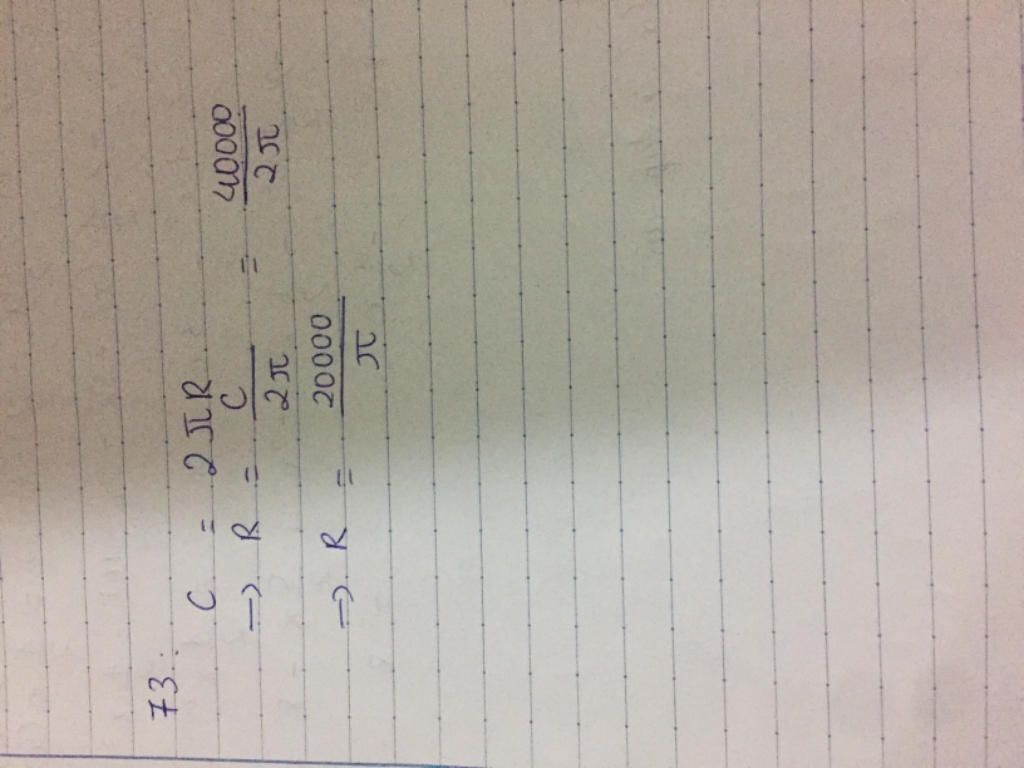 73.
C = 2πR
⇒ R = C/2π = 40000/2π
⇒ R = 20000/π